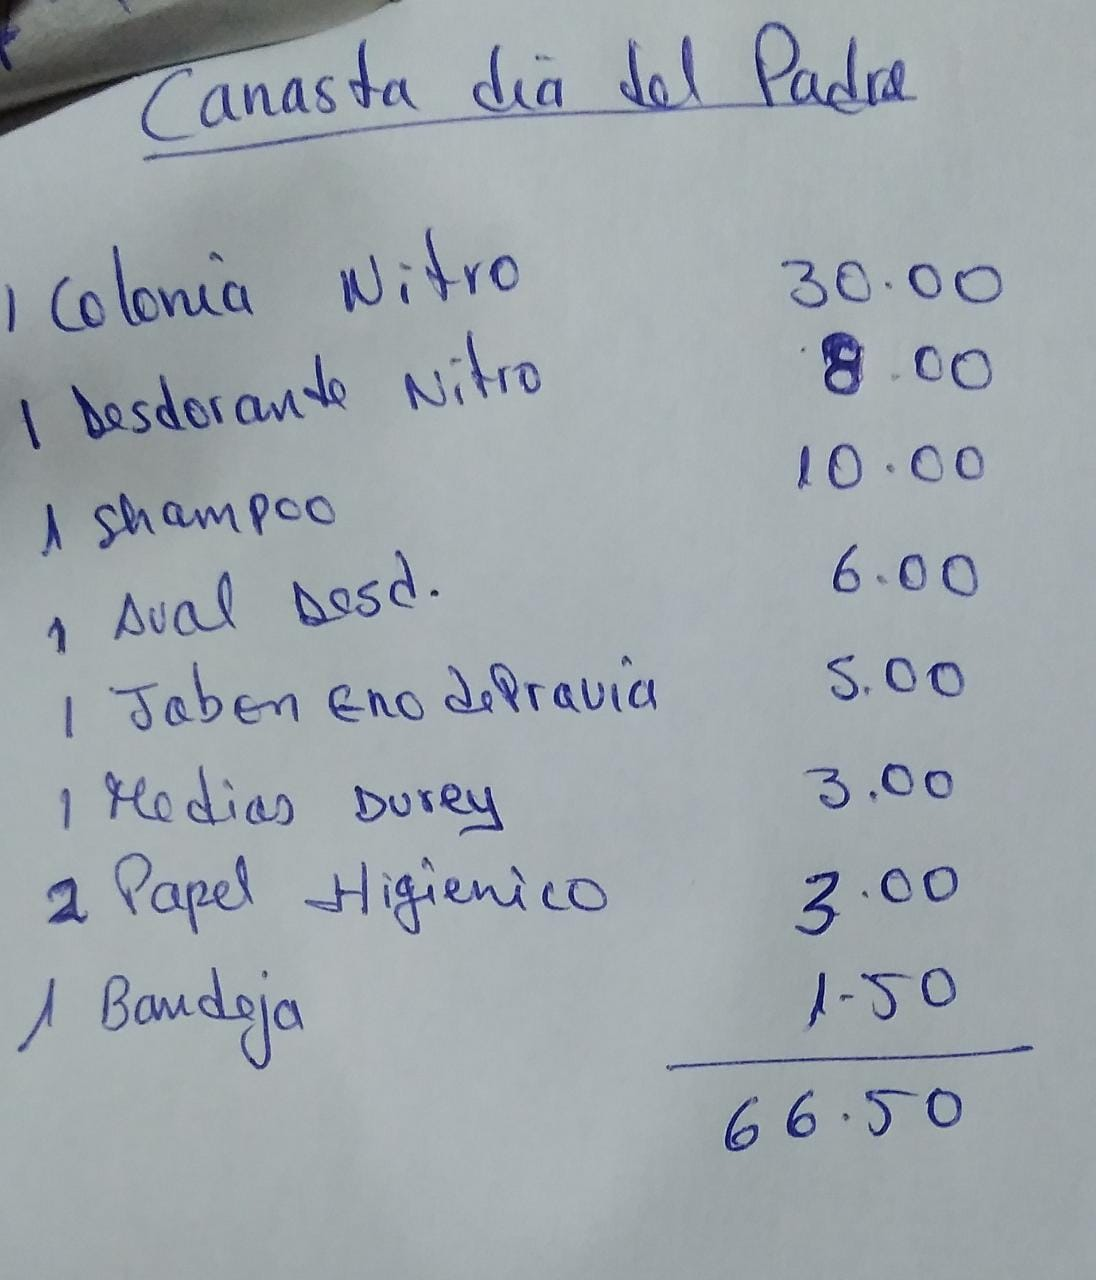 Canasta dia del Padre
1 Colonia Nitro 30.00
1 Desdorante Nitro 8.00
1 shampoo 10.00
1 Dual Desd. 6.00
1 Jabon Eno de Pravia 5.00
1 Medias Durey 3.00
2 Papel Higienico 3.00
1 Bandeja 1.50
66.50